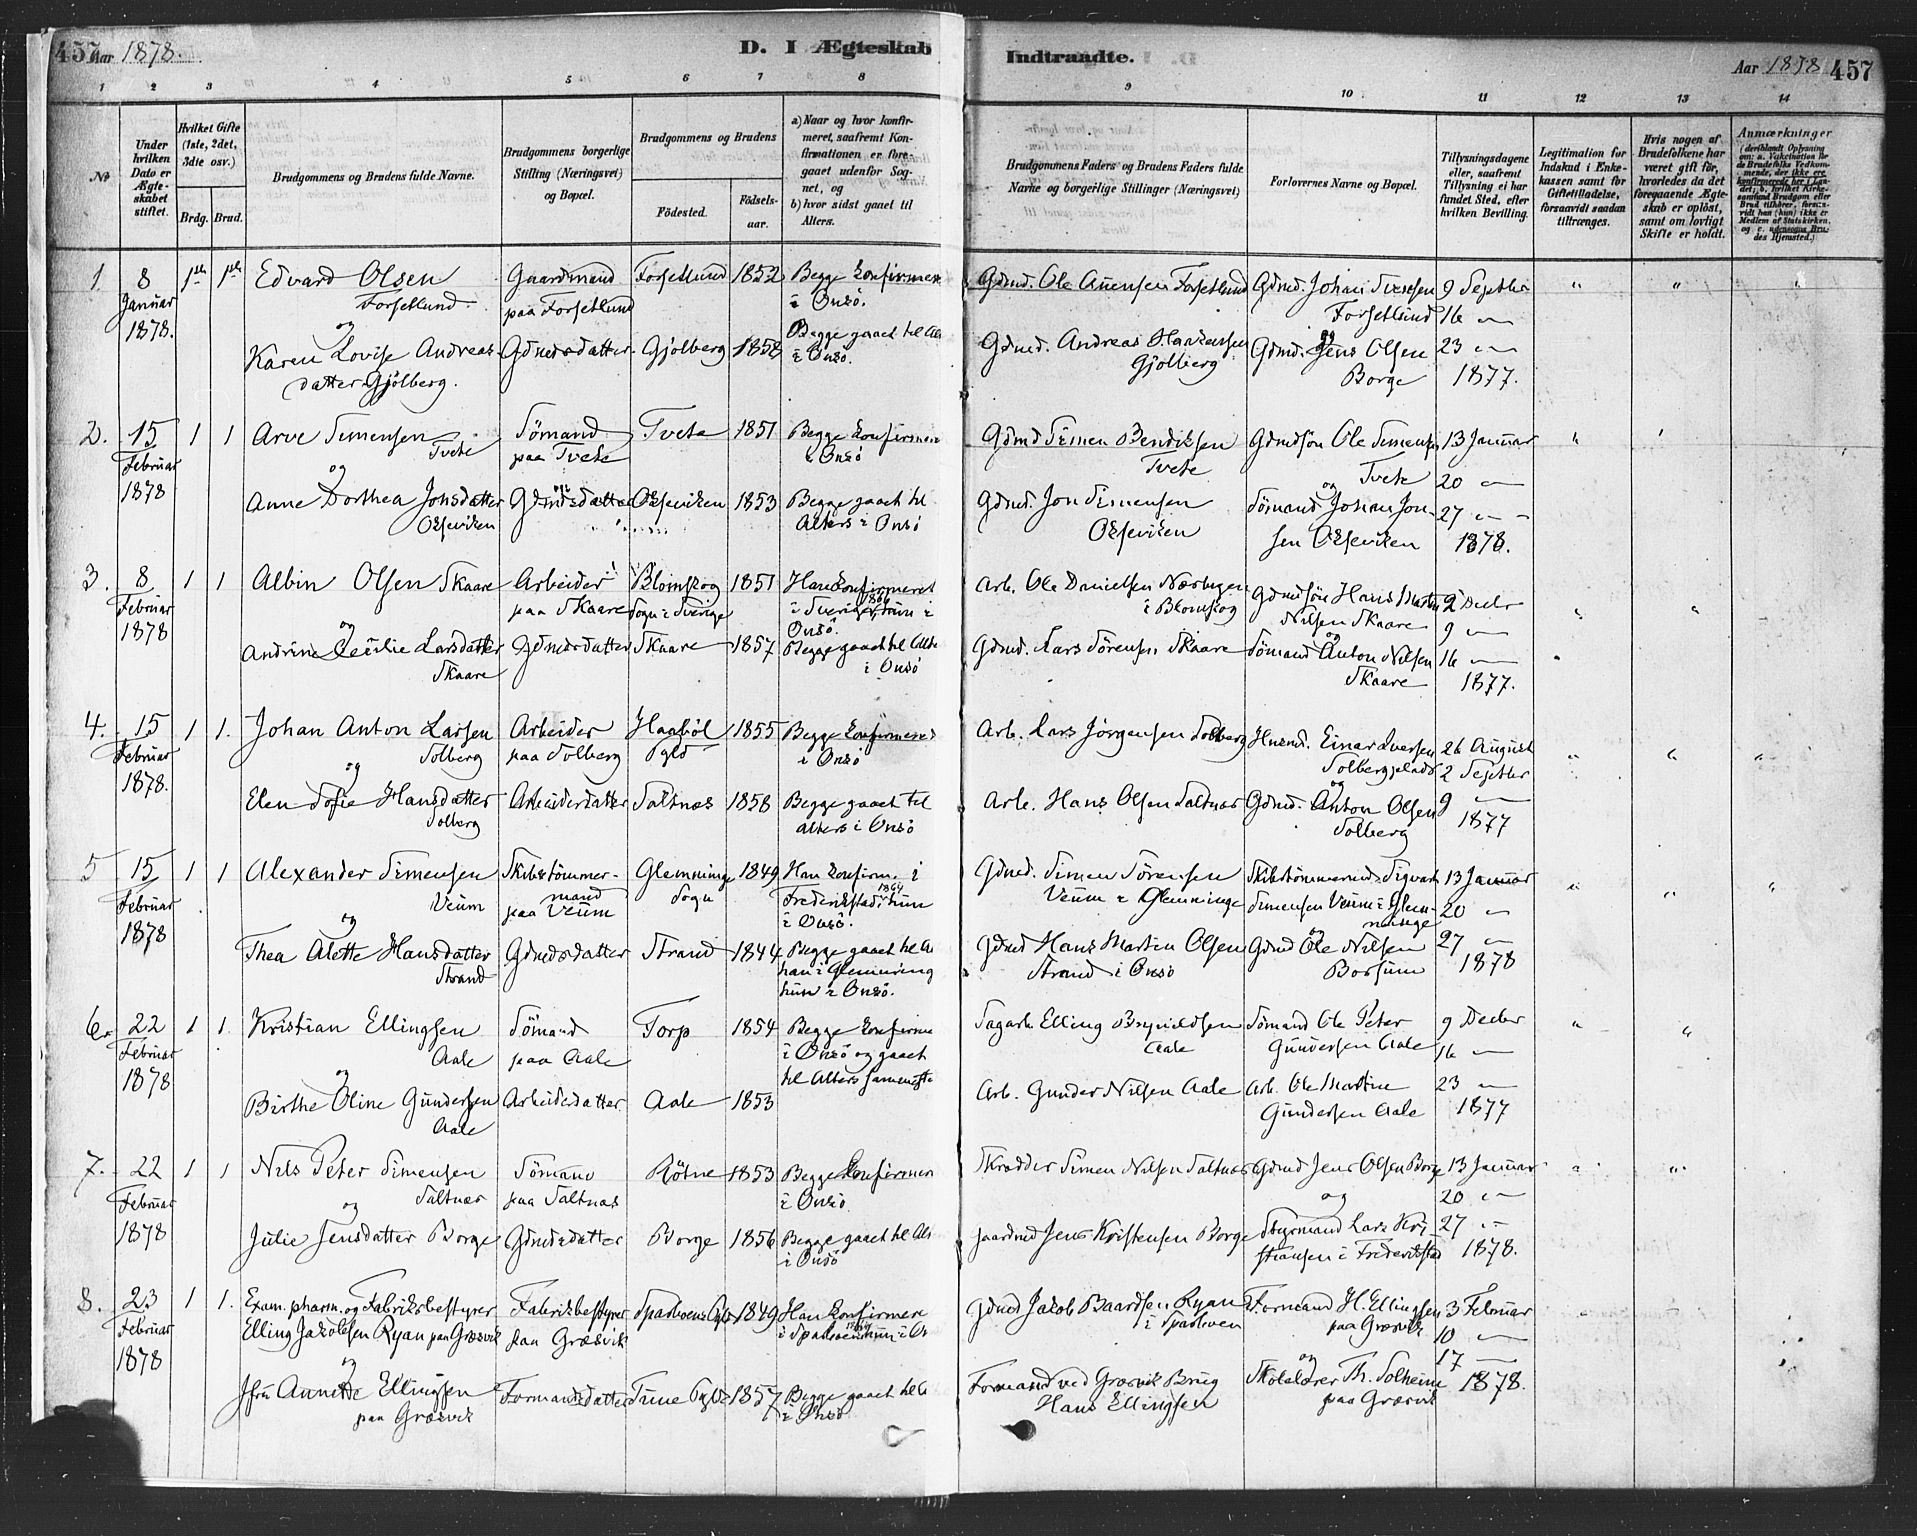 457 Aar 1878. D. I Ægteskab Indtraadte. Aar 1878 457
1 2 3 4 5 6 7 8 9 10 11 12 13 14
No
Under hvilken Dato er Ægteskabet stiftet.
Hvilket Gifte (1ste, 2det, 3die osv.)
Brdg. Brud.
Brudgommens og Brudens fulde Navne.
Brudgommens borgerlige Stilling (Næringsvei) og Bopæl.
Brudgommens og Brudens
Fødested. Fødsels-aar.
a) Naar og hvor konfir-
meret, saafremt Kon-
firmationen er fore-
gaaet udenfor Sog-
net, og
b) hvor sidst gaaet til
Alters.
Brudgommens Faders og Brudens Faders fulde
Navne og borgerlige Stillinger (Næringsvei)
Forlovernes Navne og Bopæl.
Tillysningsdagene
eller, saafremt
Tillysning ei har
fundet Sted, efter
hvilken Bevilling.
Legitimation for
Indskud i Enke-
kassen samt for
Giftetilladelse,
forsaavidt saadan
tiltrænges.
Hvis nogen af
Brudefolkene har
været gift før,
hvorledes da det
foregaaende Ægte-
skab er opløst,
samt om lovligt
Skifte er holdt.
Anmærkninger
1. 8 1ste 1ste Edvard Olsen Gaardmand Forsetlund 1852 Begge konfirmere Gdmd. Ole Forsetlund Gdmd. Johan Forsetlund 9 Septbr " " "
Januar Forsetlund paa Forsetlund i Onsö. 16 "
1878. og Begge gaaet til Al og
Karen Lovise Andreas- Gdmdsdatter Gjölberg 1858 i Onsö. Gdmd. Andreas Haakensen Gdmd. Jens Olsen 23 "
datter Gjölberg. Gjölberg Borge 1877.
2. 15 1 1 Arve Simensen Sömand Tvete 1851 Begge konfirmere Gdmd Simen Bendiksen Gdmdsön Ole Simensen 13 Januar " '
Februar Tvete paa Tvete i Onsö Tvete Tvete 20 "
1878 og og
Anne Dorthea Jonsdatter Gdmdsdatter Oxeviken 1853 Begge gaaet til Gdmd. Jon Simensen Sömand Johan Jon- 27 "
Oxeviken Alters i Onsö Oxeviken sen Oxeviken 1878.
3. 8 1 1 Albin Olsen Skaare Arbeider Blomskog 1851 Han konfirmeret Arb. Ole Danielsen i Blomskog Gdmdsön Hans Martin 2 Decbr " "
Februar paa Skaare Sogn i Sverige i Sverige 1866, hun i Nilsen Skaare 9 "
1878 og Onsö. og
Andrine Cecilie Larsdatter Gdmdsdatter Skaare 1857 Begge gaaet til Alte Gdmd. Lars Sörensen Skaare Sömand Anton Nilsen 16 "
Skaare i Onsö Skaare 1877.
4. 15 1 1. Johan Anton Larsen Arbeider Haaböl 1855 Begge konfirmered Arb. Lars Jörgensen Solberg Husmd. Einar Iversen 26 August " " "
Februar Solberg paa Solberg Pgld i Onsö Solbergplads 2 Septbr
1878. og og
Elen Sofie Hansdatter Arbeidersdatter Saltnæs 1858 Begge gaaet til Arb. Hans Olsen Saltnæs Gdmd. Anton Olsen 9 "
Solberg Alters i Onsö Solberg 1877
5 15 1 1 Alexander Simensen Skibstömmer- Glemminge 1849 Han konfirm. i Gdmd. Simen Sörensen Skibstömmermd Sigvart 13 Januar " " "
Februar Veum mand Sogn Fredrikstad 1864 hun Veum i Glemminge Simensen Veum i Glem- 20 "
1878 og paa Veum i Onsö. minge og
Thea Alette Hansdatter Gdmdsdatter Strand 1844 Begge gaaet til Al Gdmd Hans Martin Olsen Gdmd Ole Nilsen 27 "
Strand han i Glemming Strand i Onsö Borsum 1878
hun i Onsö.
6. 22 1 1. Kristian Ellingsen Sömand Torp 1854 Begge konfirme Sagarb. Elling Aale Sömand Ole Peter 9 Decbr " "
Februar Aale paa Aale i Onsö og gaaet Gundersen Aale 16 "
1878 og til Alters sammeste
Birthe Oline Gundersen Arbeidsdatter Aale 1853 Arb. Gunder Nilsen Aale Arb. Ole Martin 23 "
Aale Gundersen Aale 1877
7. 22 1 1 Nils Peter Simensen Sömand Rötne 1853 Begge konfirmer Skrædder Simen Nilsen Saltnæs Gdmd Jens Olsen Borge 13 Januar " "
Februar Saltnæs paa Saltnæs i Onsö og 20 "
1878 og
Julie Jensdatter Borge Gdmdsdatter Borge 1856 Begge gaaet til Al Gaardmd Jens Kristensen Borge Styrmand Lars Kri- 27 "
i Onsö stiansen i Fredrikstad 1878.
8. 23 1 1. Exam. pharm. og Fabriksbestyrer Fabriksbestyrer 1849 Han konfirmere Gdmd Jakob Baardsen Ryan Formand H. Ellingsen 3 Februar
Februar Elling Jakobsen Ryan paa Græsvik paa Græsvik i hun i On i Sparboen paa Græsvik 10 "
1878 og og 17 "
Jfru Annette Ellingsen Formandsdatter Tune Pgld 1857 Begge gaaet til A Formand ved Græsvik Brug Skolelærer Th. Solheim 1878.
paa Græsvik i Onsö Hans Ellingsen paa Græsvik